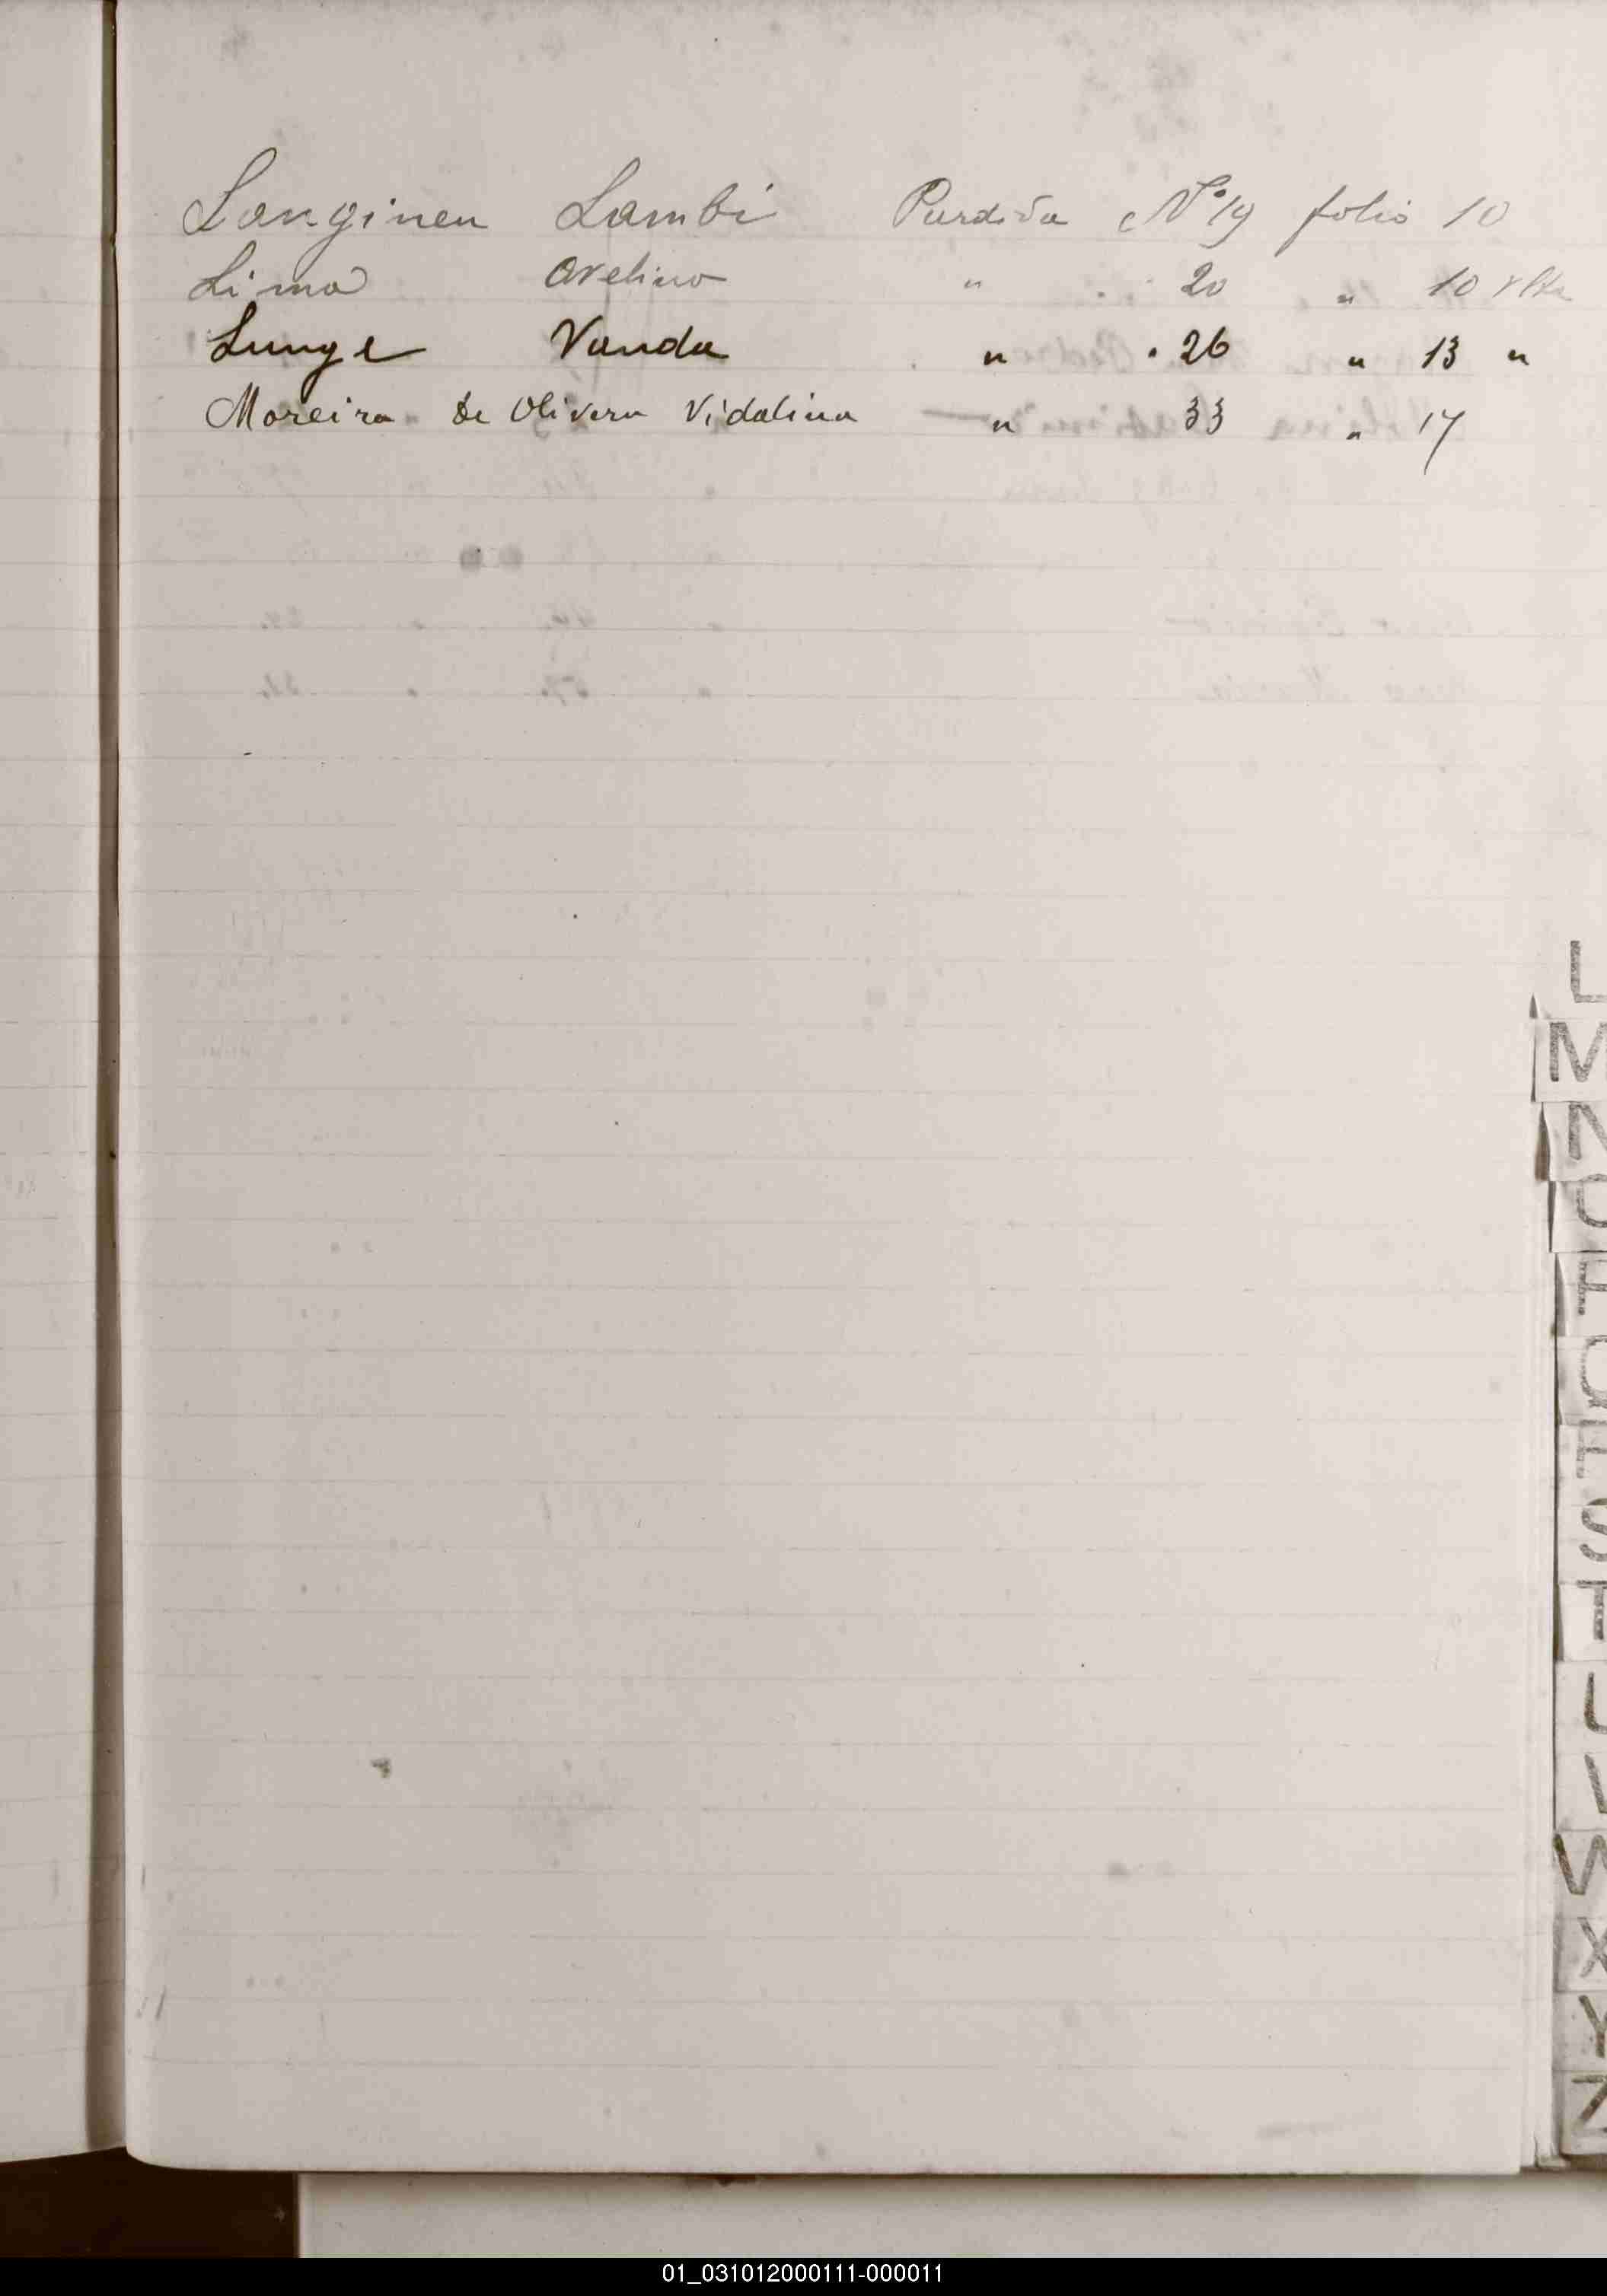 Langinen Lambi Partida Nº 19 folio 10
Lima Avelino " " 20 " 10 vlta
Lunge Vanda " " 26 " 13 "
Moreira de Olivera Vidalina " 33 " 17
L
M
N
O
P
Q
R
S
T
U
V
W
X
Y
Z
01_031012000111-000011